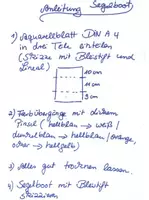 Anleitung Segelboot
1) Aquarellblatt DIN A 4
in drei Teile einteilen
(Skizze mit Bleistift und
Lineal)
10 cm
11 cm
9 cm
2) Farbübergänge mit dickem
Pinsel (hellblau → weiß /
dunkelblau → hellblau / orange,
ocker → hellgelb)
3) Alles gut trocknen lassen.
4) Segelboot mit Bleistift
skizzieren